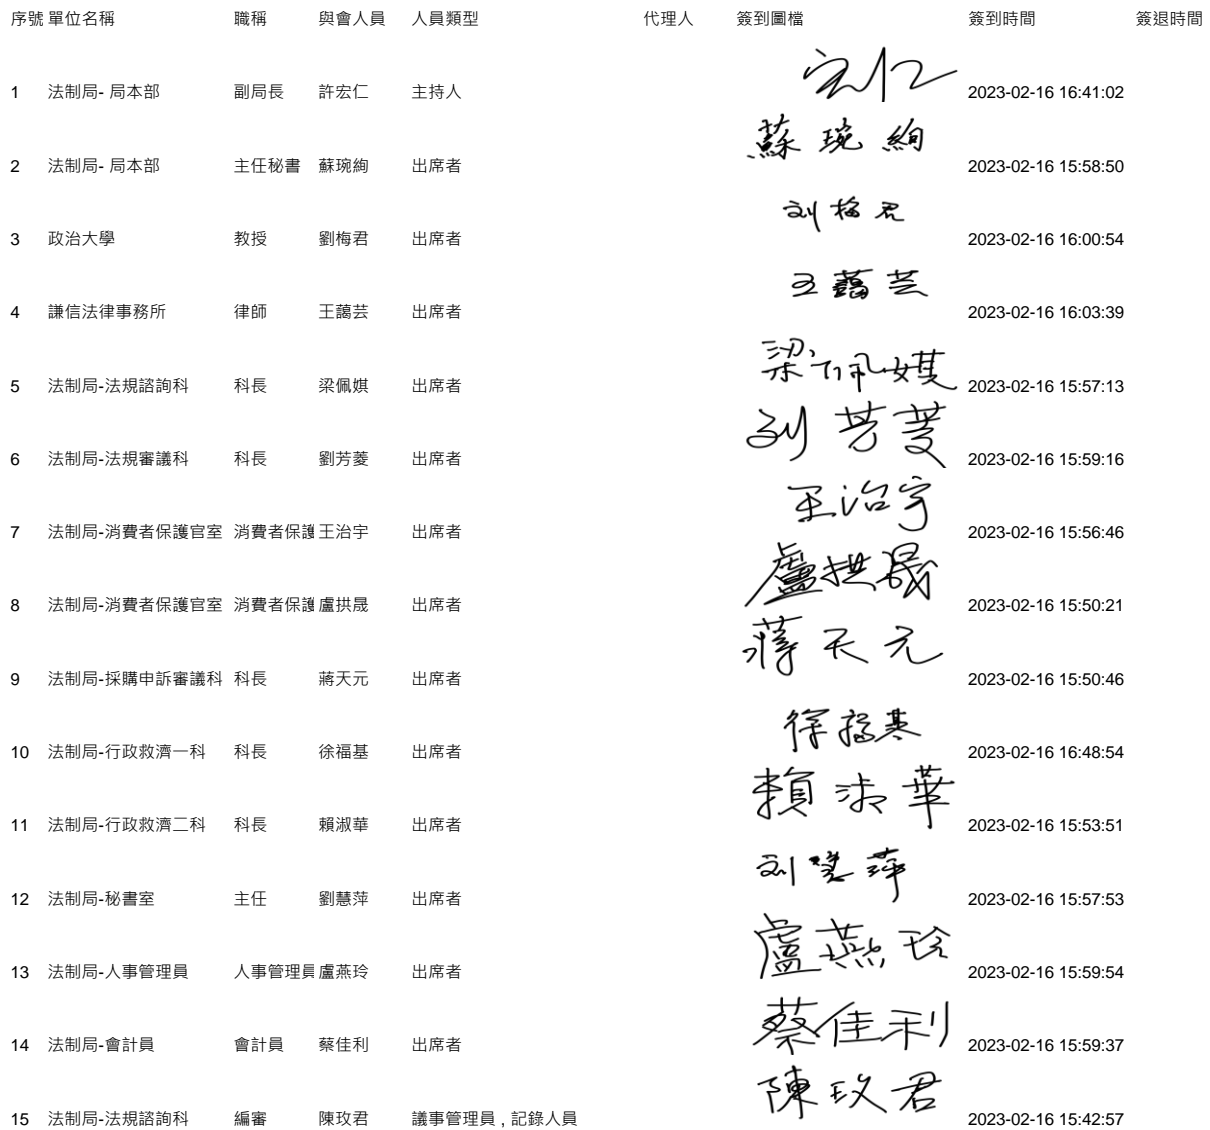 序號 單位名稱 職稱 與會人員 人員類型 代理人 簽到圖檔 簽到時間 簽退時間
宏仁
1 法制局- 局本部 副局長 許宏仁 主持人 2023-02-16 16:41:02
蘇琬絢
2 法制局- 局本部 主任秘書 蘇琬絢 出席者 2023-02-16 15:58:50
刘梅君
3 政治大學 教授 劉梅君 出席者 2023-02-16 16:00:54
王藹芸
4 謙信法律事務所 律師 王藹芸 出席者 2023-02-16 16:03:39
梁佩娸
5 法制局-法規諮詢科 科長 梁佩娸 出席者 2023-02-16 15:57:13
刘芳菱
6 法制局-法規審議科 科長 劉芳菱 出席者 2023-02-16 15:59:16
王治宇
7 法制局-消費者保護官室 消費者保護 王治宇 出席者 2023-02-16 15:56:46
盧拱晟
8 法制局-消費者保護官室 消費者保護 盧拱晟 出席者 2023-02-16 15:50:21
蔣天元
9 法制局-採購申訴審議科 科長 蔣天元 出席者 2023-02-16 15:50:46
徐福基
10 法制局-行政救濟一科 科長 徐福基 出席者 2023-02-16 16:48:54
賴淑華
11 法制局-行政救濟二科 科長 賴淑華 出席者 2023-02-16 15:53:51
刘慧萍
12 法制局-秘書室 主任 劉慧萍 出席者 2023-02-16 15:57:53
盧燕玲
13 法制局-人事管理員 人事管理員 盧燕玲 出席者 2023-02-16 15:59:54
蔡佳利
14 法制局-會計員 會計員 蔡佳利 出席者 2023-02-16 15:59:37
陳玫君
15 法制局-法規諮詢科 編審 陳玫君 議事管理員 , 記錄人員 2023-02-16 15:42:57